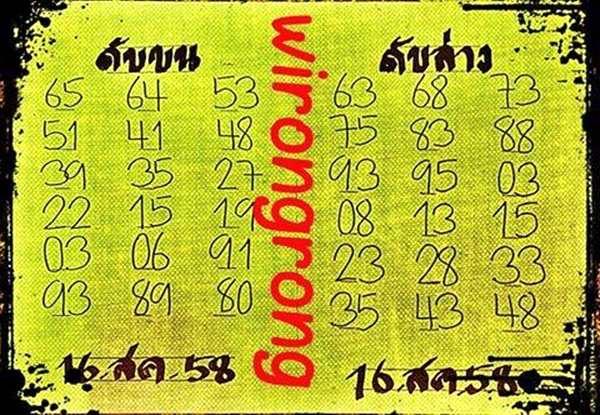 ดับบน
65 64 53
51 41 48
39 35 27
22 15 19
03 06 91
93 89 80
16 สค 58
wirongrong
ดับล่าง
63 68 73
75 83 88
93 95 03
08 13 15
23 28 33
35 43 48
16 สค 58